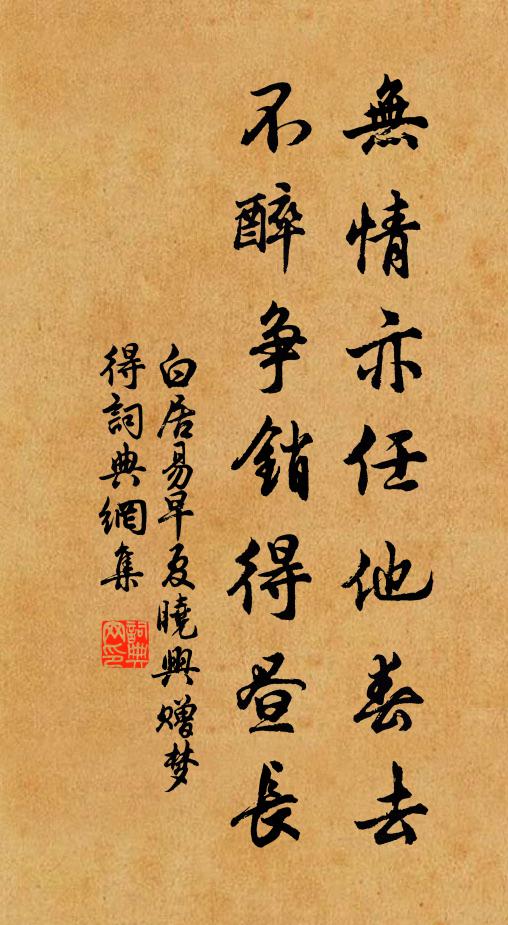 無情亦任他春去
不醉争銷得昼長
白居易早夏曉興贈梦
得詞典網集
詞典
网印